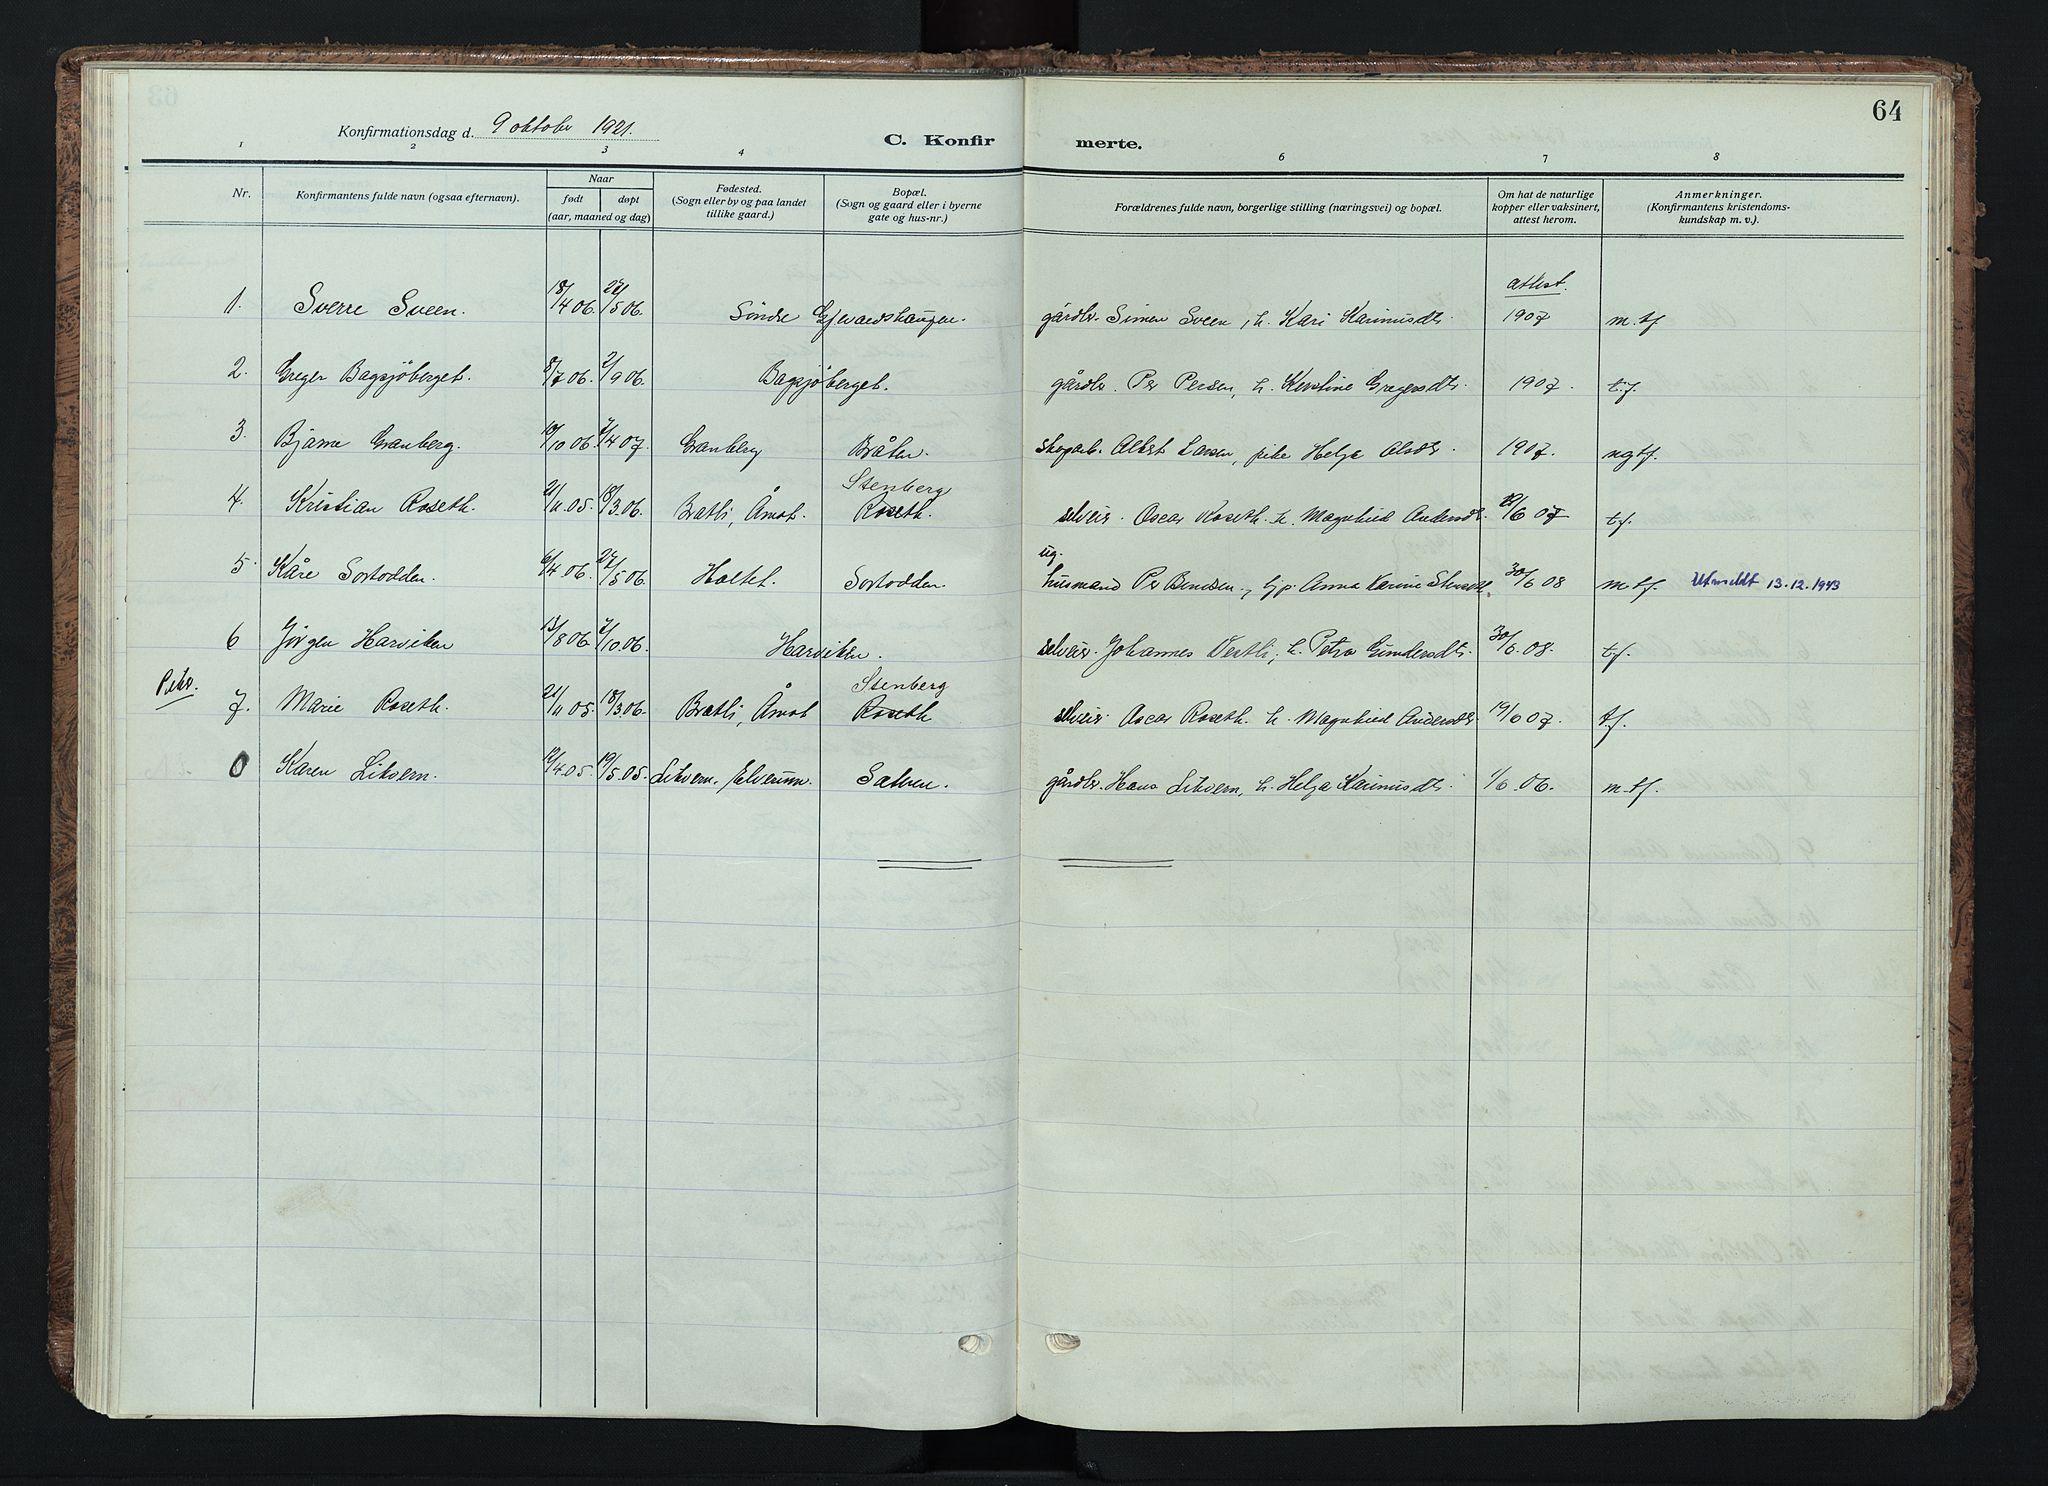 64
Konfirmationsdag d. 9 oktober 1921.
C. Konfirmerte.
1 2 3 4 6 7 8
Nr. Konfirmantens fulde navn (ogsaa efternavn). Naar født døpt (aar, maaned og dag) Fødested. (Sogn eller by og paa landet tillike gaard.) Bopæl. (Sogn og gaard eller i byerne gate og hus-nr.) Forældrenes fulde navn, borgerlige stilling (næringsvei) og bopæl. Om hat de naturlige kopper eller vaksinert, attest herom. Anmerkninger. (Konfirmantens kristendoms-kundskap m. v.).
attest.
1. Sverre Sveen. 18/4 06. 27/5 06. Søndre Gjerardshaugen. gårdbr. Simen Sveen, h. Kari Karinusdtr. 1907 m.tf.
2. Greger Bagsjöberget. 8/7 06. 2/9 06. Bagsjöberget. gårdbr. Per Persen, h. Kerstine Gregersdtr. 1907. t.f.
3. Bjarne Granberg. 10/10 06. 1/4 07. Granberg Bråten. skogarb. Albert Larsen, pike Helga Olsdtr. 1907. ngtf.
Stenberg
4. Kristian Roseth. 21/11 05. 18/3 06. Brætli, Åmot. Roseth. selveier. Oscar Roseth. h. Magnhild Andersdtr. 19/6 07 t.f.
ug.
5. Kåre Sortodden. 6/4 06. 27/5 06. Holtet. Sortodden. husmand Per Bendsen., Anna Karine 30/6 08 m.tf. Utmeldt 13.12.1943
6 Jörgen Harviken 13/8 06. 7/10 06. Harviken. selveier. Johannes Vestli, h. Petra Gundersdtr. 30/6. 08. t.f.
Piker.
Stenberg
7. Marie Roseth. 21/11 05. 18/3 06. Brætli, Åmot Roseth selveier Oscar Roseth. h. Magnhild Andersdtr. 19/6 07. t.f.
0 Karen Litvern. 12/4 05. 19/5. 05. Litvern, Elverum. Sætren. gårdbr. Hans Litvern, h. Helga Karinusdtr. 1/6. 06. m.tf.